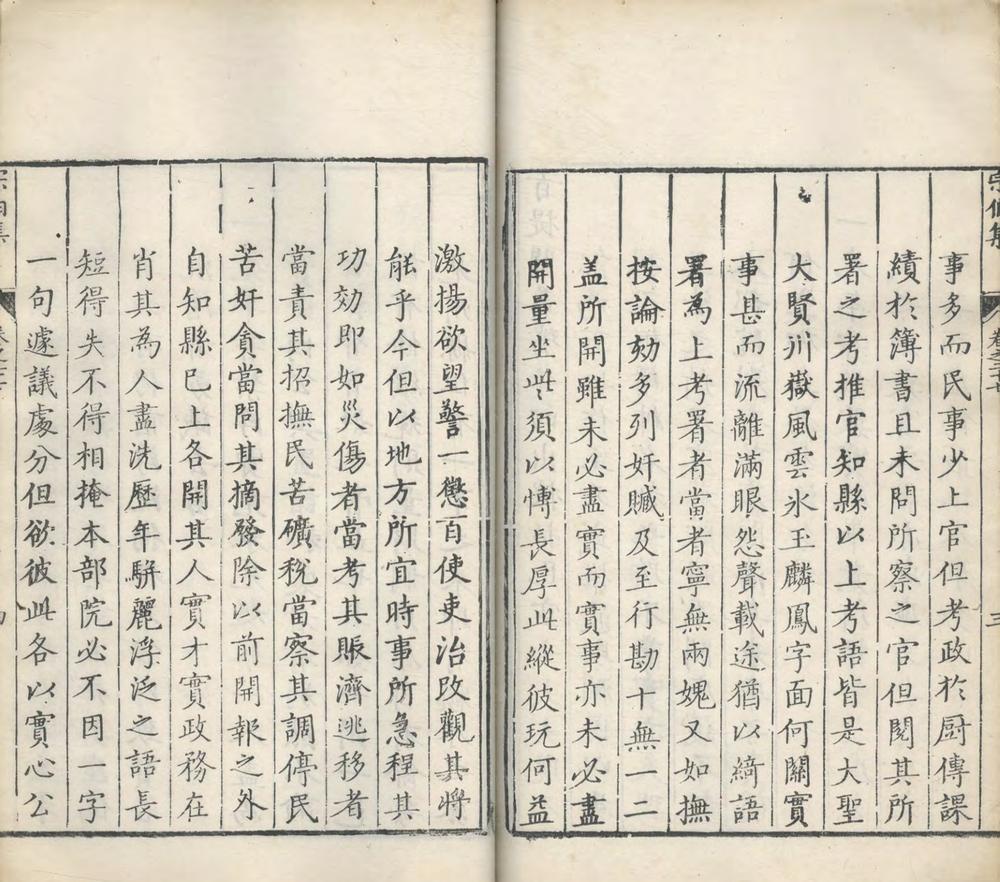 宗伯集
卷之三十七
三
事多而民事少上官但考政於厨傳課
績於簿書且未問所察之官但閱其所
署之考推官知縣以上考語皆是大聖
大賢川嶽風雲氷玉麟鳳字面何關實
事甚而流離滿眼怨聲載途猶以綺語
署為上考署者當者寧無兩媿又如撫
按論劾多列奸贓及至行勘十無一二
盖所開雖未必盡實而實事亦未必盡
開量坐此須以慱長厚此縱彼玩何益
激揚欲望警一懲百使吏治改觀其將
能乎今但以地方所宜時事所急程其
功効即如災傷者當考其賑濟逃移者
當責其招撫民苦礦稅當察其調停民
苦奸貪當問其摘發除以前開報之外
自知縣巳上各開其人實才實政務在
肖其為人盡洗歷年駢麗浮泛之語長
短得失不得相掩本部院必不因一字
一句遽議處分但欲彼此各以實心公
宗伯集